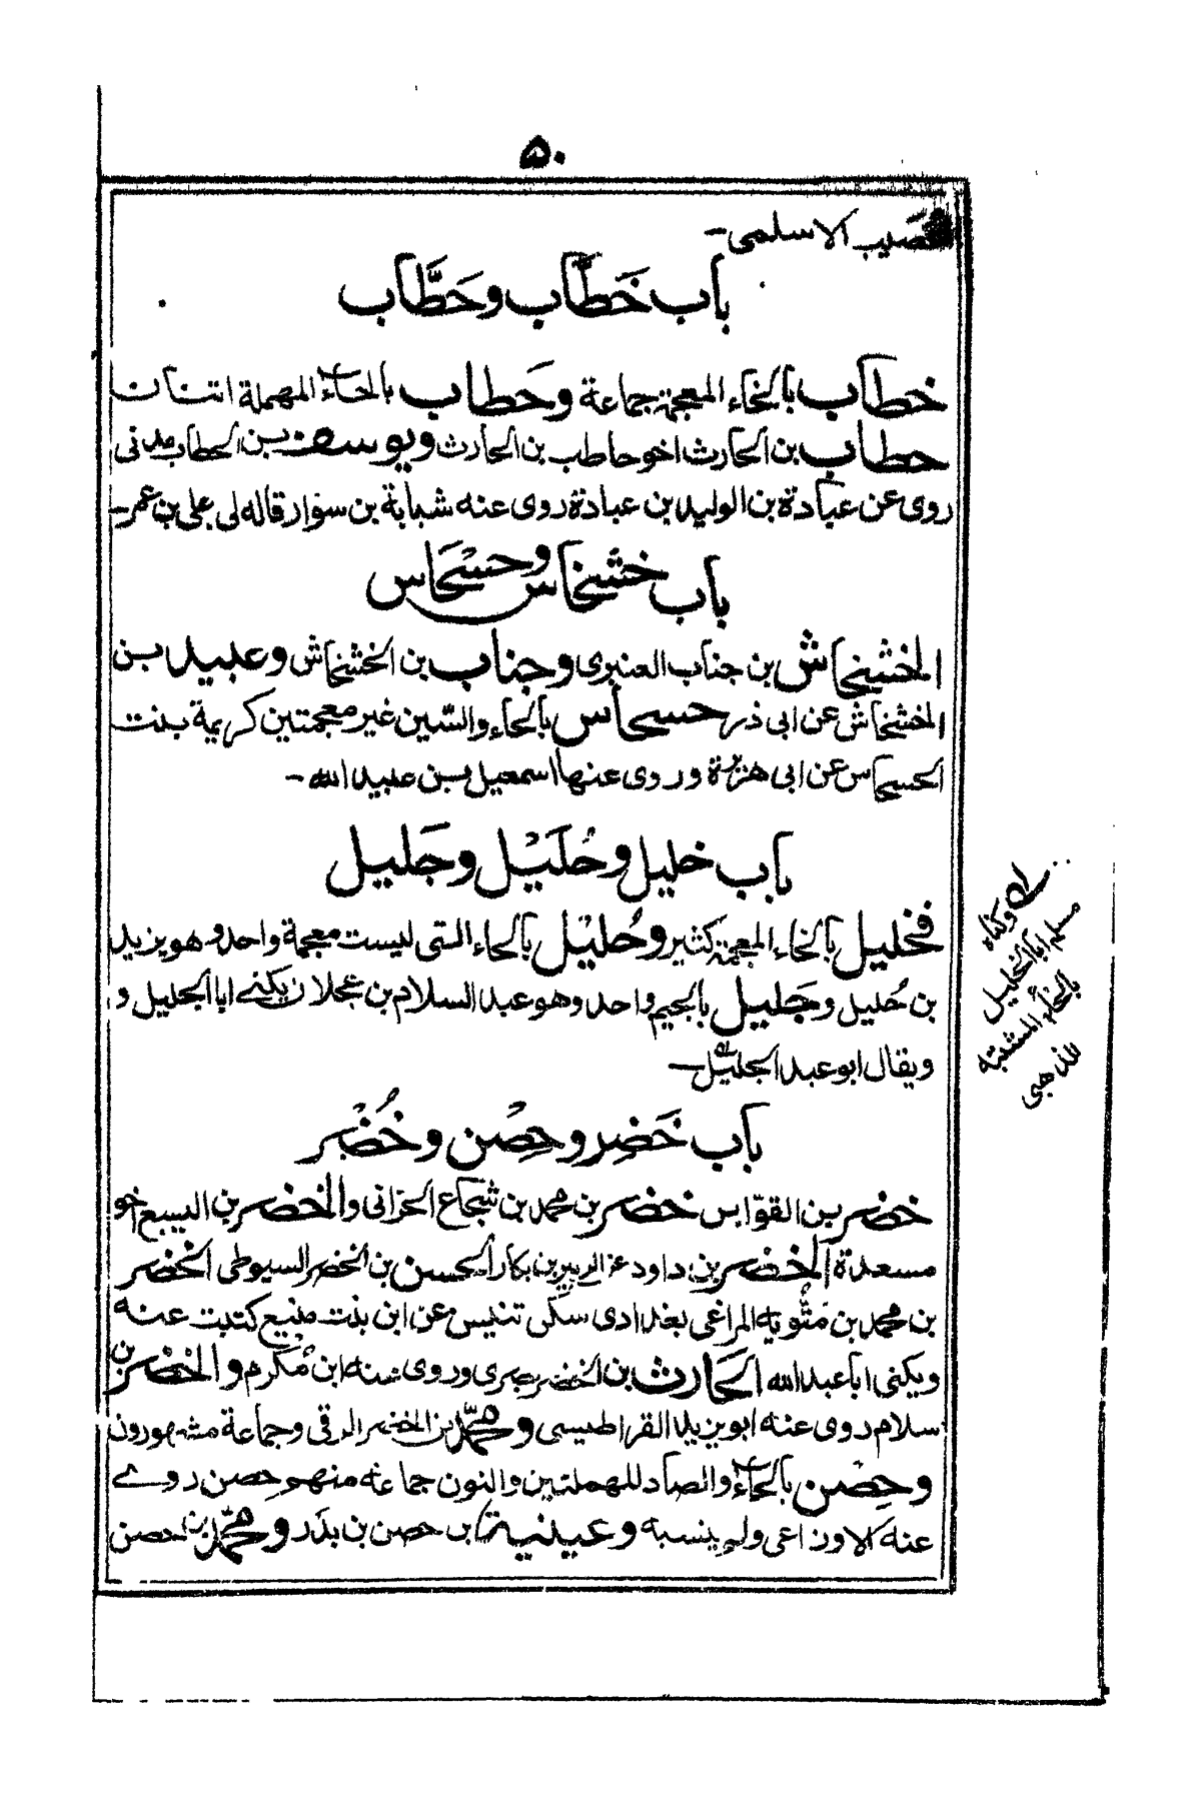 ۵۰
حصيب الاسلمى -
باب خَطَّاب وحَطَّاب
خطاب بالخاء المعجمة جماعة وحطاب بالحاء المهملة اثنان
حطاب بن الحارث اخو حاطب بن الحارث ويوسف بن الحطاب مدنى
روى عن عبادة بن الوليد بن عبادة روى عنه شبابة بن سوار قاله لى على بن عمر -
باب خشخاش وحسحاس
الخشخاش بن جناب العنبرى وجناب بن الخشخاش وعبيد بن
الخشخاش عن ابى ذر حسحاس بالحاء والسين غير معجمتين كريمة بنت
الحسحاس عن ابى هريرة وروى عنها اسمعيل بن عبيد الله -
باب خليل وحُلَيْل وجَليل
فخليل بالخاء المعجمة كثير وحُليْل بالحاء التى ليست معجمة واحد وهو يزيد
بن حُليل وجَليل بالجيم واحد وهو عبد السلام بن عجلان يكنى ابا الجليل و
ويقال ابو عبد الجليل -
وكناه
مسلم ابا الخليل
بالخاء المشتبه
للذهبى
باب خَضِر وحِصْن وخُضْر
خضر بن القواس خضر بن محمد بن شجاع الحرانى والخضر بن اليسع اخو
مسعدة الخضر بن داود عن الزبير بن بكار الحسن بن الخضر السيوطى الخضر
بن محمد بن مثويه المراغى بغدادى سكن تنيس عن ابن بنت منيع كتبت عنه
ويكنى ابا عبد الله الحارث بن الخضر بصرى وروى عنه ابن مكرم والخضر بن
سلام روى عنه ابو يزيد القراطيسى ومحمد بن الخضر الرقى وجماعة مشهورون
وحِصْن بالحاء والصاد المهملتين والنون جماعة منهم حصن روى
عنه الاوزاعى ولم ينسبه وعيينة بن حصن بن بدر ومحمد بن حصن